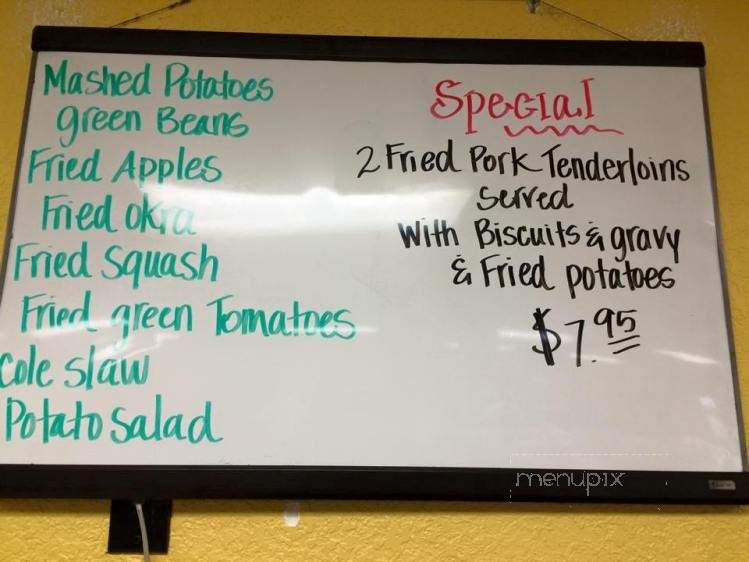 Mashed Potatoes
green Beans
Fried Apples
Fried okra
Fried Squash
Fried green Tomatoes
Cole slaw
Potato salad
Special
2 Fried Pork Tenderloins
Served
With Biscuits & gravy
& Fried potatoes
$7.95
menupix